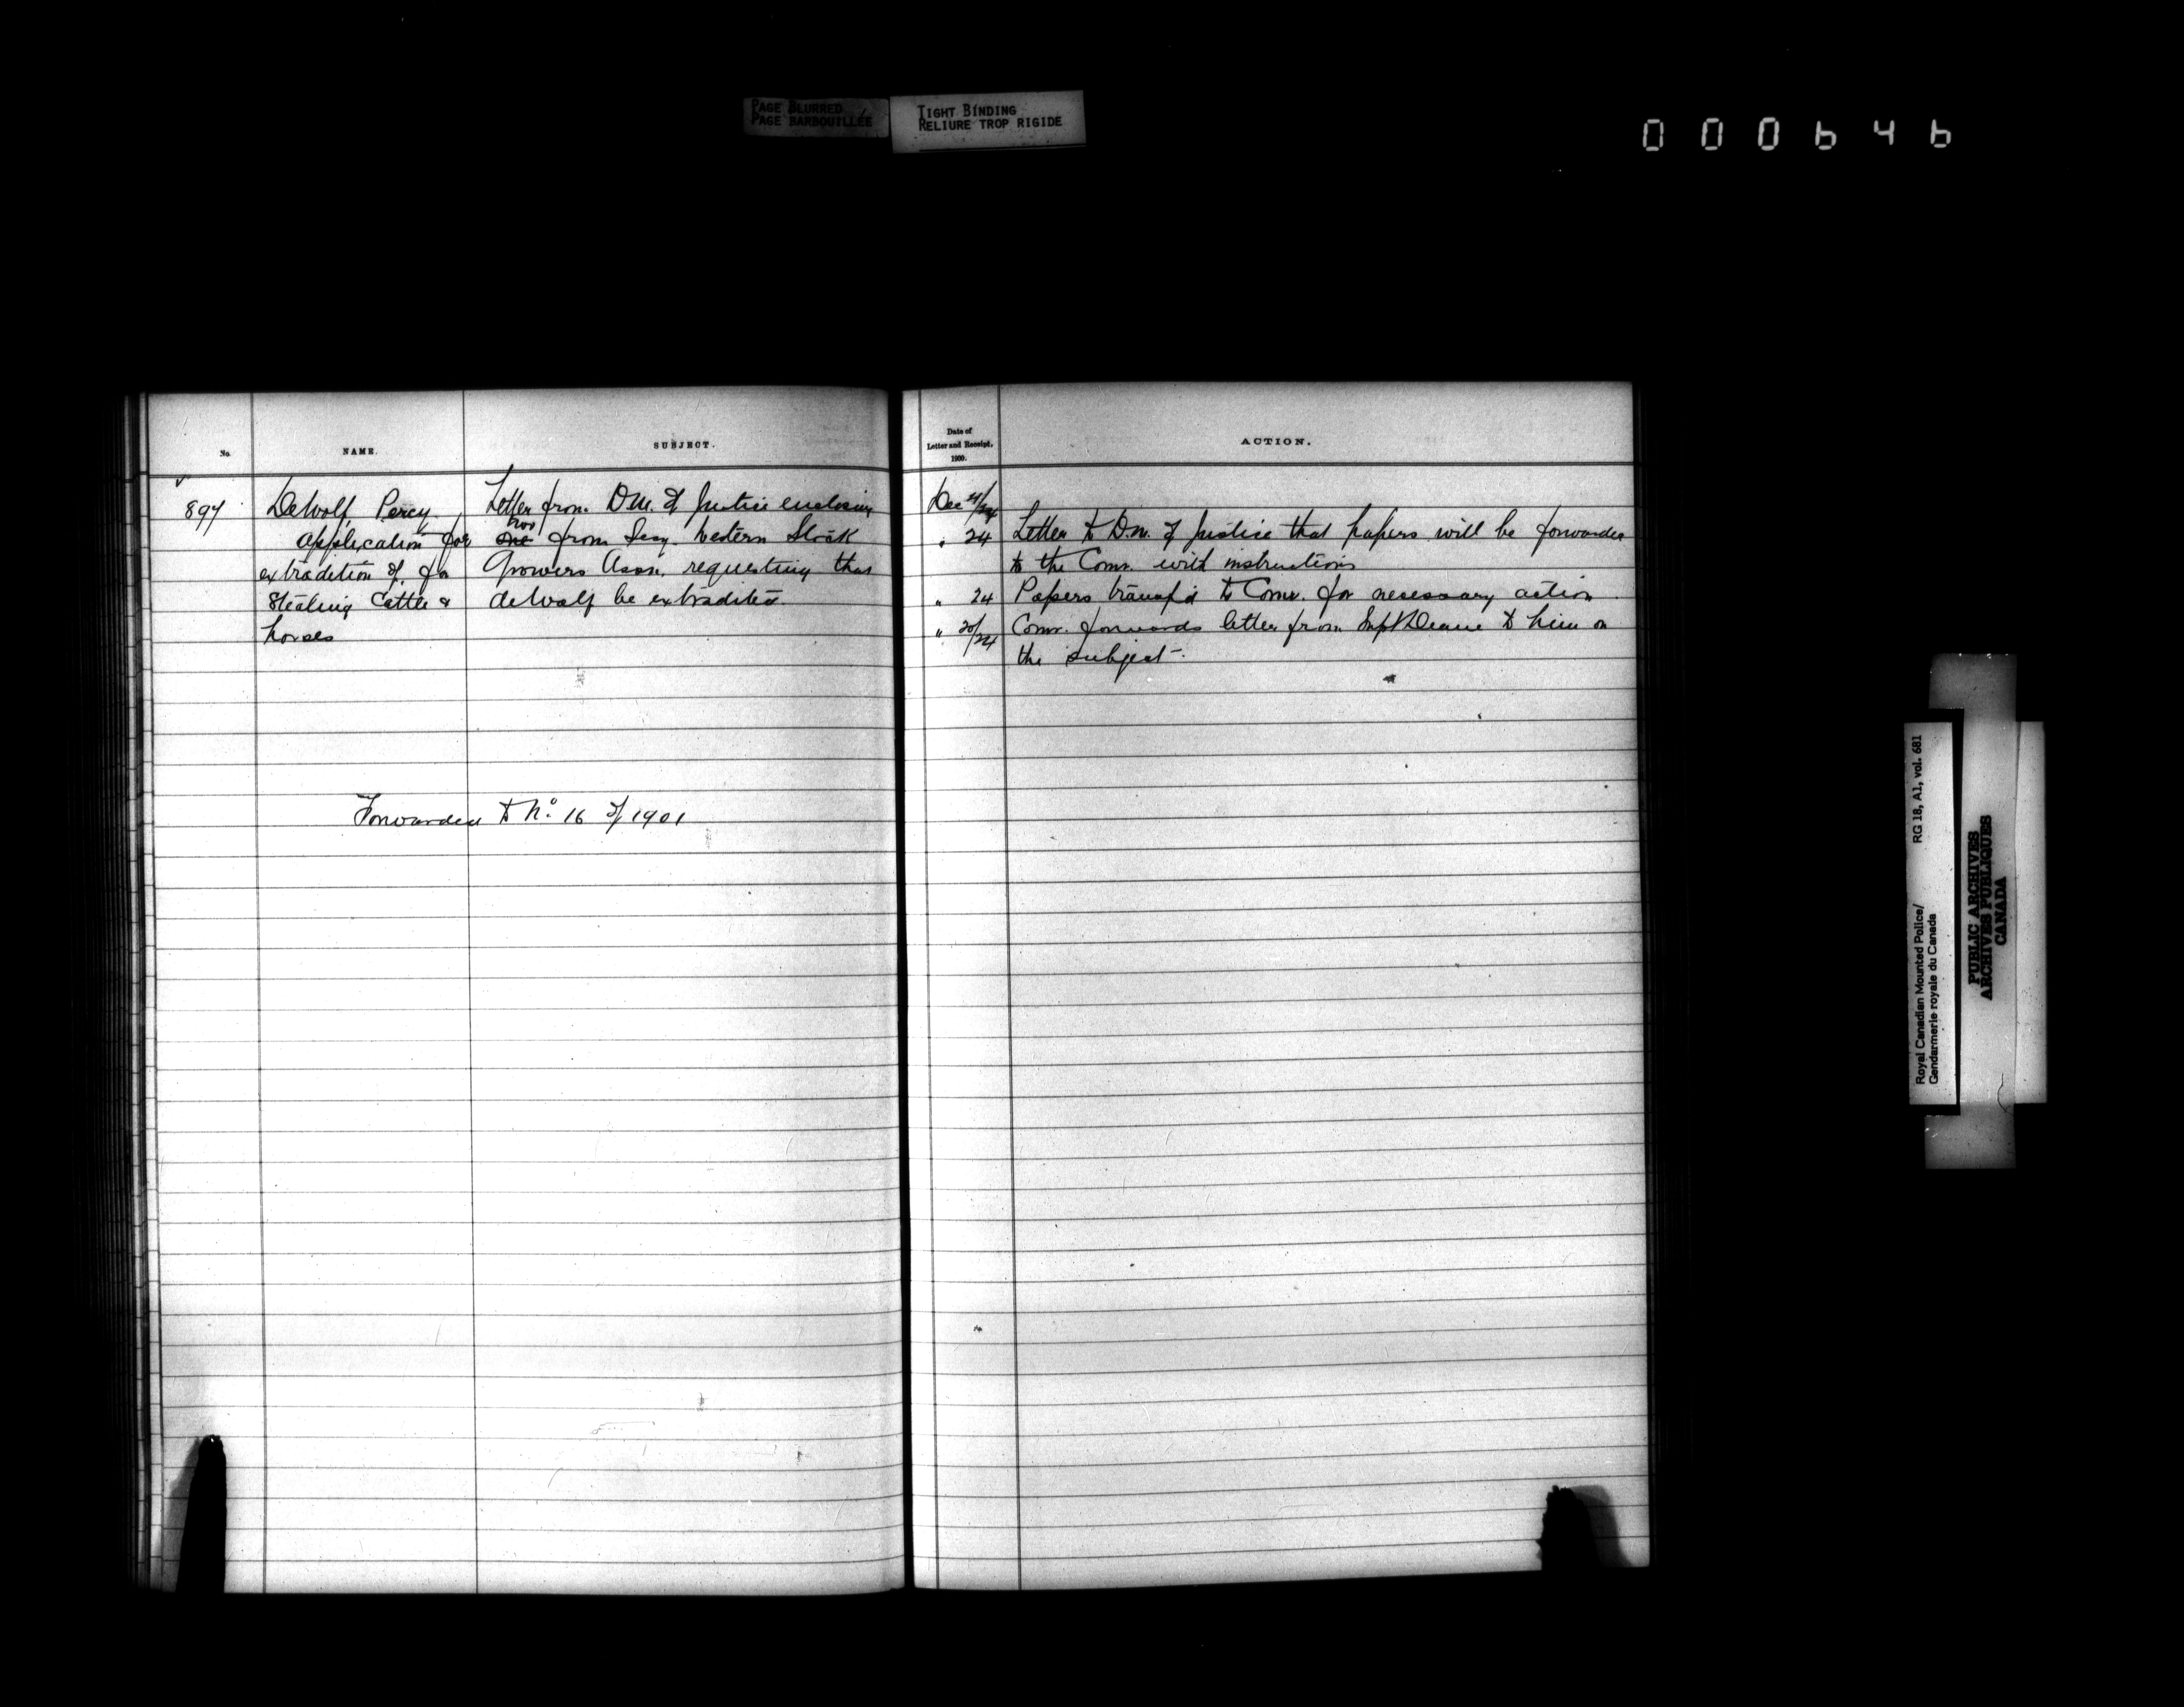 PAGE BLURRED
PAGE BARBOUILLÉE
TIGHT BINDING
RELIURE TROP RIGIDE
000646
No.
NAME.
SUBJECT.
897
DeWolf, Percy
application for
extradition of, for
Stealing Cattle &
horses
Letter from D.M. of Justice enclosing
two
one from Secy. Western Stock
Growers Assn. requesting that
deWolf be extradited
Forwarded to No. 16 of/1901
Date of
Letter and Receipt,
1900.
ACTION.
Dec 21/24
" 24 Letter to D.M. of Justice that papers will be forwarded
to the Comr. with instructions
" 24 Papers transf'd to Comr. for necessary action
" 20/24 Comr. forwards letter from Supt Deane to him on
the subject.
Royal Canadian Mounted Police/
Gendarmerie royale du Canada
RG 18, A1, vol. 681
PUBLIC ARCHIVES
ARCHIVES PUBLIQUES
CANADA